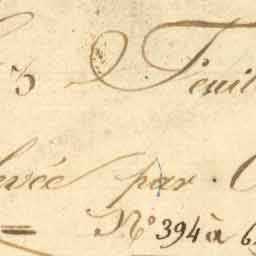 3 Feuil
levée par
N° 394 à 6